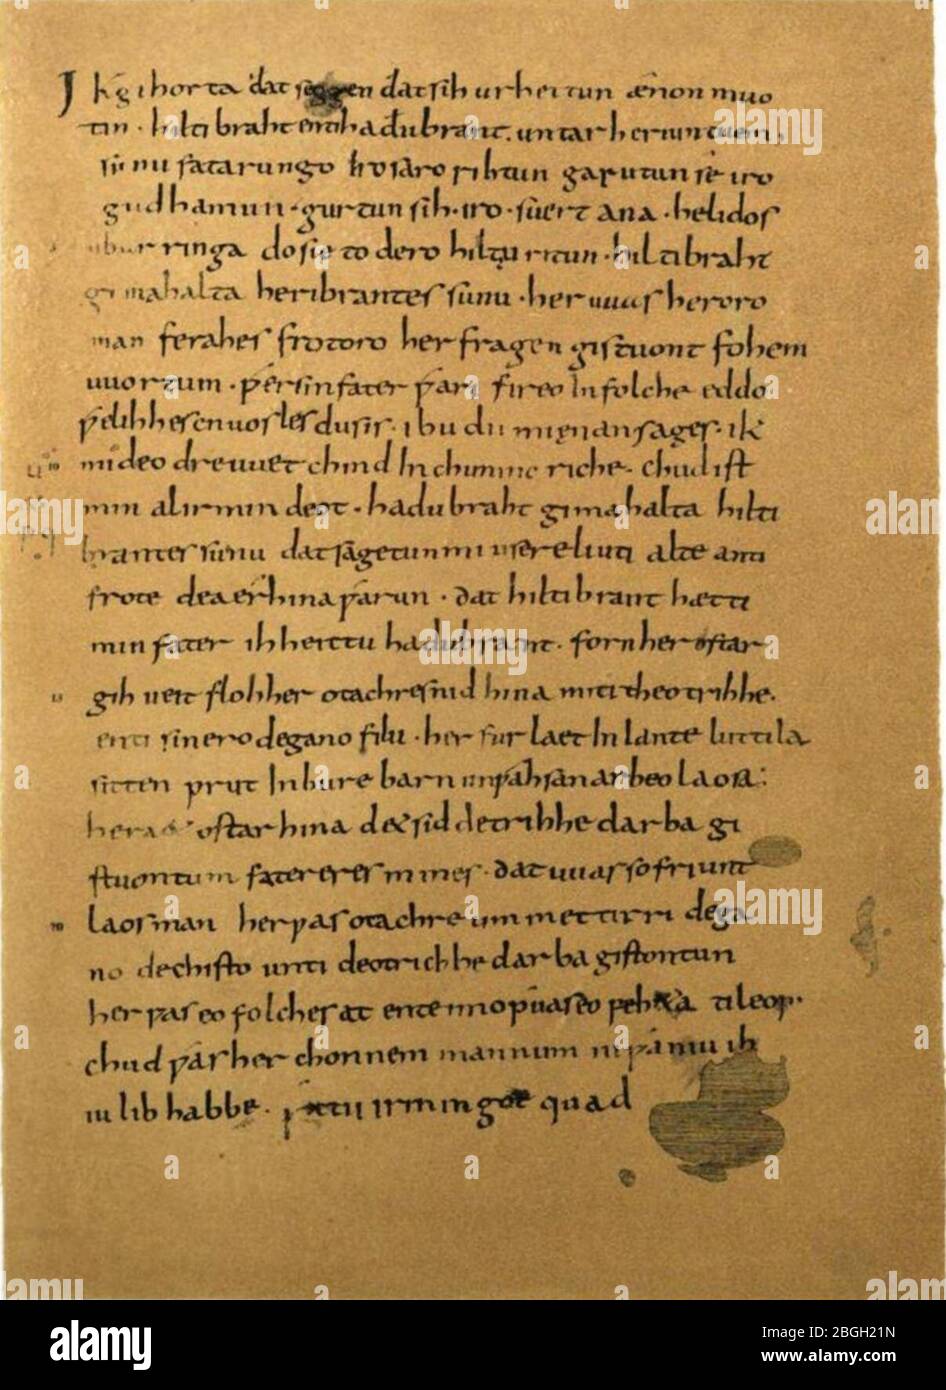 Ik gihorta ðat seggen ðat sih urhettun ænon muo
tin · hiltibraht enti haðubrant · untar heriuntuem ·
sunu fatarungo iro saro rihtun garutun se iro
guðhamun · gurtun sih · iro · suert ana · helidos
ubar ringa do sie to dero hiltiu ritun · hiltibraht
gimahalta heribrantes sunu · her uuas heroro
man ferahes frotoro her fragen gistuont fohem
uuortum · ƿer sin fater ƿari fireo In folche eddo
ƿelihhes cnuosles du sis · ibu du mi ęnan sages · ik
10 mi deo dre uuet chind In chunincriche · chud ist
min al irmindeot · hadubraht gimahalta hilti
brantes sunu dat sagetun mi usere liuti alte anti
frote dea érhina ƿarun · dat hiltibrant hætti
min fater ih heittu hadubrant · forn her ostar
15 gih ueit floh her otachres nid hina miti theotrihhe ·
enti sinero degano filu · her fur laet In lante luttila
sitten prut In bure barn unƿahsan arbeo laosa :
heraet ostar hina d& sid detrihhe darba gi
stuontum fatereres mines · dat uuas so friunt
20 laos man her ƿas otachre ummettirri dega
no dechisto unti deotrichhe darba gistontun
her ƿas eo folches at ente imo ƿuas eo peheta ti leop ·
chud ƿas her chonnem mannum ni ƿaniu ih
iu lib habbe · ƿettu irmingot quad
alamy
Image ID: 2BGH21N
www.alamy.com